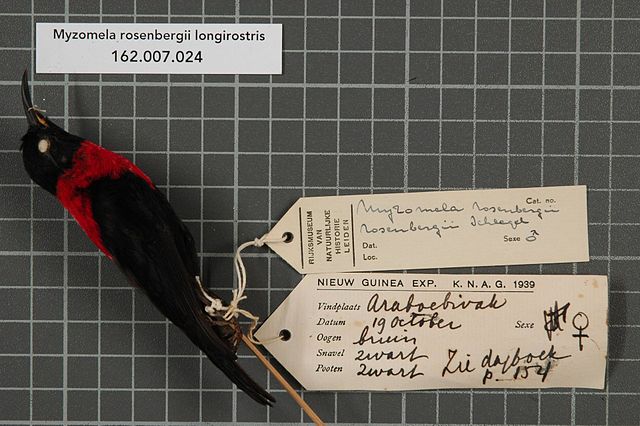 Myzomela rosenbergii longirostris
162.007.024
RIJKSMUSEUM
VAN
NATUURLIJKE
HISTORIE
LEIDEN
Cat. no.
Myzomela rosenbergii
rosenbergii Schlegel
Dat. Sexe ♂
Loc.
NIEUW GUINEA EXP. K. N. A. G. 1939
Vindplaats Araboebivak
Datum 19 October Sexe ♀
Oogen bruin
Snavel zwart Zie dagboek
Pooten zwart p. 154